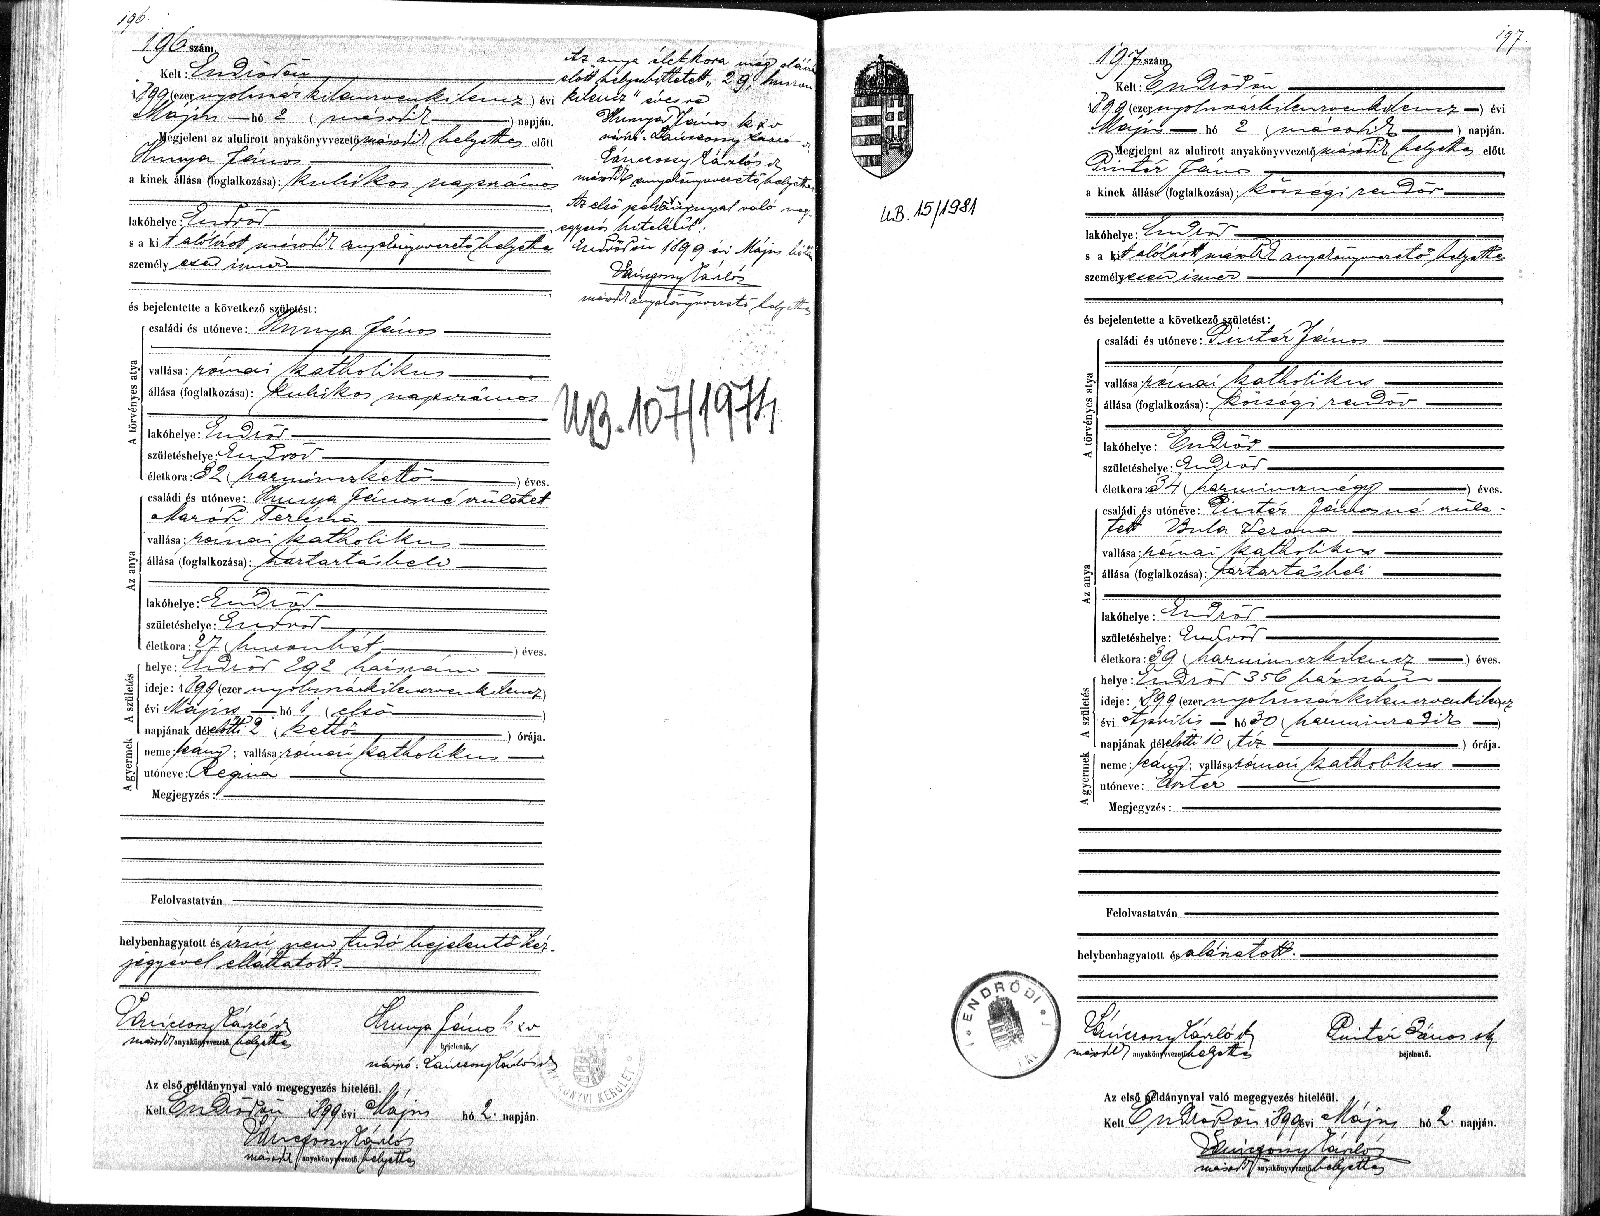 196.
196 szám.
Kelt: Endrődön
1899 (ezer nyolczszázkilenczvenkilencz) évi
Május hó 2 (második) napján.
Megjelent az alulirott anyakönyvvezető második helyettes előtt
Hunya János
a kinek állása (foglalkozása): kubikos napszámos
lakóhelye: Endrőd
s a kit alólírott második anyakönyvvezető helyettes
személyesen ismer
és bejelentette a következő születést:
A törvényes atya
családi és utóneve: Hunya János
vallása: római katholikus
állása (foglalkozása): kubikos napszámos
lakóhelye: Endrőd
születéshelye: Endrőd
életkora: 32 (harminczkettő) éves.
Az anya
családi és utóneve: Hunya Jánosné született
Maródi Terézia
vallása: római katholikus
állása (foglalkozása): háztartásbeli
lakóhelye: Endrőd
születéshelye: Endrőd
életkora: 27 (huszonhét) éves.
A születés
helye: Endrőd 292 házszám
ideje: 1899 (ezer nyolczszázkilenczvenkilencz)
évi Május hó 1 (első)
napjának délelőtti 2 (kettő) órája.
A gyermek
neme: leány; vallása: római katholikus
utóneve: Regina
Megjegyzés:
Felolvastatván
helybenhagyatott és írni nem tudó bejelentő kéz-
jegyével elláttatott.
Lánczony Károly Hunya János k x v
második anyakönyvvezető helyettes bejelentő.
névíró:
Az első példánynyal való megegyezés hiteléül.
Kelt Endrődön 1899 évi Május hó 2. napján.
második anyakönyvvezető helyettes
Az anya életkora még aláírás
előtt helyesbittetett "29, huszon
kilencz" évesre
Hunya János k x v
második anyakönyvvezető helyettes
Az első példánynyal való meg-
egyezés hiteléül.
Endrődön 1899 évi Május hó
második anyakönyvvezető helyettes
UB. 107/1974
197.
197 szám.
Kelt: Endrődön
1899 (ezer nyolczszázkilenczvenkilencz) évi
Május hó 2 (második) napján.
Megjelent az alulirott anyakönyvvezető második helyettes előtt
Pintér János
a kinek állása (foglalkozása): községi rendőr
lakóhelye: Endrőd
s a kit alólírott második anyakönyvvezető helyettes
személyesen ismer
és bejelentette a következő születést:
A törvényes atya
családi és utóneve: Pintér János
vallása: római katholikus
állása (foglalkozása): községi rendőr
lakóhelye: Endrőd
születéshelye: Endrőd
életkora: 34 (harmincznégy) éves.
Az anya
családi és utóneve: Pintér Jánosné szüle-
tett Bula Verona
vallása: római katholikus
állása (foglalkozása): háztartásbeli
lakóhelye: Endrőd
születéshelye: Endrőd
életkora: 39 (harminczkilencz) éves.
A születés
helye: Endrőd 356 házszám
ideje: 1899 (ezer nyolczszázkilenczvenkilencz
évi Április hó 30 (harminczadik)
napjának délelőtti 10 (tíz) órája.
A gyermek
neme: leány; vallása: római katholikus
utóneve: Eszter
Megjegyzés:
Felolvastatván
helybenhagyatott és aláíratott.
Pintér János sk
második anyakönyvvezető helyettes bejelentő.
Az első példánynyal való megegyezés hiteléül.
Kelt Endrődön 1899 évi Május hó 2. napján.
második anyakönyvvezető helyettes
UB. 15/1981
ENDRŐDI